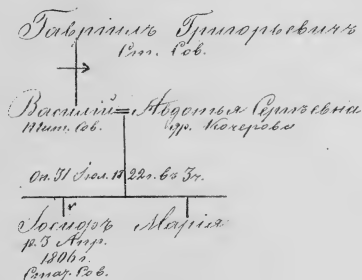 Гавріилъ Григорьевичъ
Ст. Сов.
Василій = Авдотья Сергѣевна
Тит. Сов. др. Кочерова
Оп. 31 Іюл. 1822 г. въ 3 ч.
Іосифъ Марія
р. 3 Апр.
1806 г.
Стат. Сов.